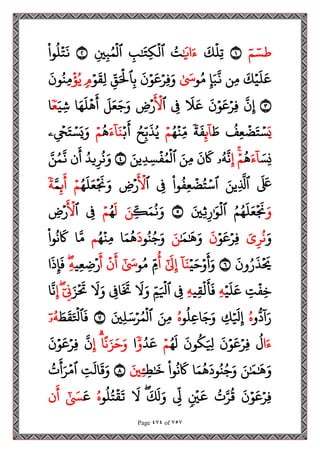 طسٓمٓ ١ تِلْكَ ءَايَٰتُ ٱلْكِتَٰبِ ٱلْمُبِينِ ٢ نَتْلُوا۟
عَلَيْكَ مِن نَّبَإِ مُوسَىٰ وَفِرْعَوْنَ بِٱلْحَقِّ لِقَوْمٍ يُؤْمِنُونَ
٣ إِنَّ فِرْعَوْنَ عَلَا فِى ٱلْأَرْضِ وَجَعَلَ أَهْلَهَا شِيَعًا
يَسْتَضْعِفُ طَآئِفَةً مِّنْهُمْ يُذَبِّحُ أَبْنَآءَهُمْ وَيَسْتَحْىِۦ
نِسَآءَهُمْ ۚ إِنَّهُۥ كَانَ مِنَ ٱلْمُفْسِدِينَ ٤ وَنُرِيدُ أَن نَّمُنَّ
عَلَى ٱلَّذِينَ ٱسْتُضْعِفُوا۟ فِى ٱلْأَرْضِ وَنَجْعَلَهُمْ أَئِمَّةً
وَنَجْعَلَهُمُ ٱلْوَٰرِثِينَ ٥ وَنُمَكِّنَ لَهُمْ فِى ٱلْأَرْضِ
وَنُرِىَ فِرْعَوْنَ وَهَٰمَٰنَ وَجُنُودَهُمَا مِنْهُم مَّا كَانُوا۟
يَحْذَرُونَ ٦ وَأَوْحَيْنَآ إِلَىٰٓ أُمِّ مُوسَىٰٓ أَنْ أَرْضِعِيهِ ۖ فَإِذَا
خِفْتِ عَلَيْهِ فَأَلْقِيهِ فِى ٱلْيَمِّ وَلَا تَخَافِى وَلَا تَحْزَنِىٓ ۖ إِنَّا
رَآدُّوهُ إِلَيْكِ وَجَاعِلُوهُ مِنَ ٱلْمُرْسَلِينَ ٧ فَٱلْتَقَطَهُۥٓ
ءَالُ فِرْعَوْنَ لِيَكُونَ لَهُمْ عَدُوًّا وَحَزَنًا ۗ إِنَّ فِرْعَوْنَ
وَهَٰمَٰنَ وَجُنُودَهُمَا كَانُوا۟ خَٰطِـِٔينَ ٨ وَقَالَتِ ٱمْرَأَتُ
فِرْعَوْنَ قُرَّتُ عَيْنٍ لِّى وَلَكَ ۖ لَا تَقْتُلُوهُ عَسَىٰٓ أَن
Page ٤٧٤ of ٧٥٧